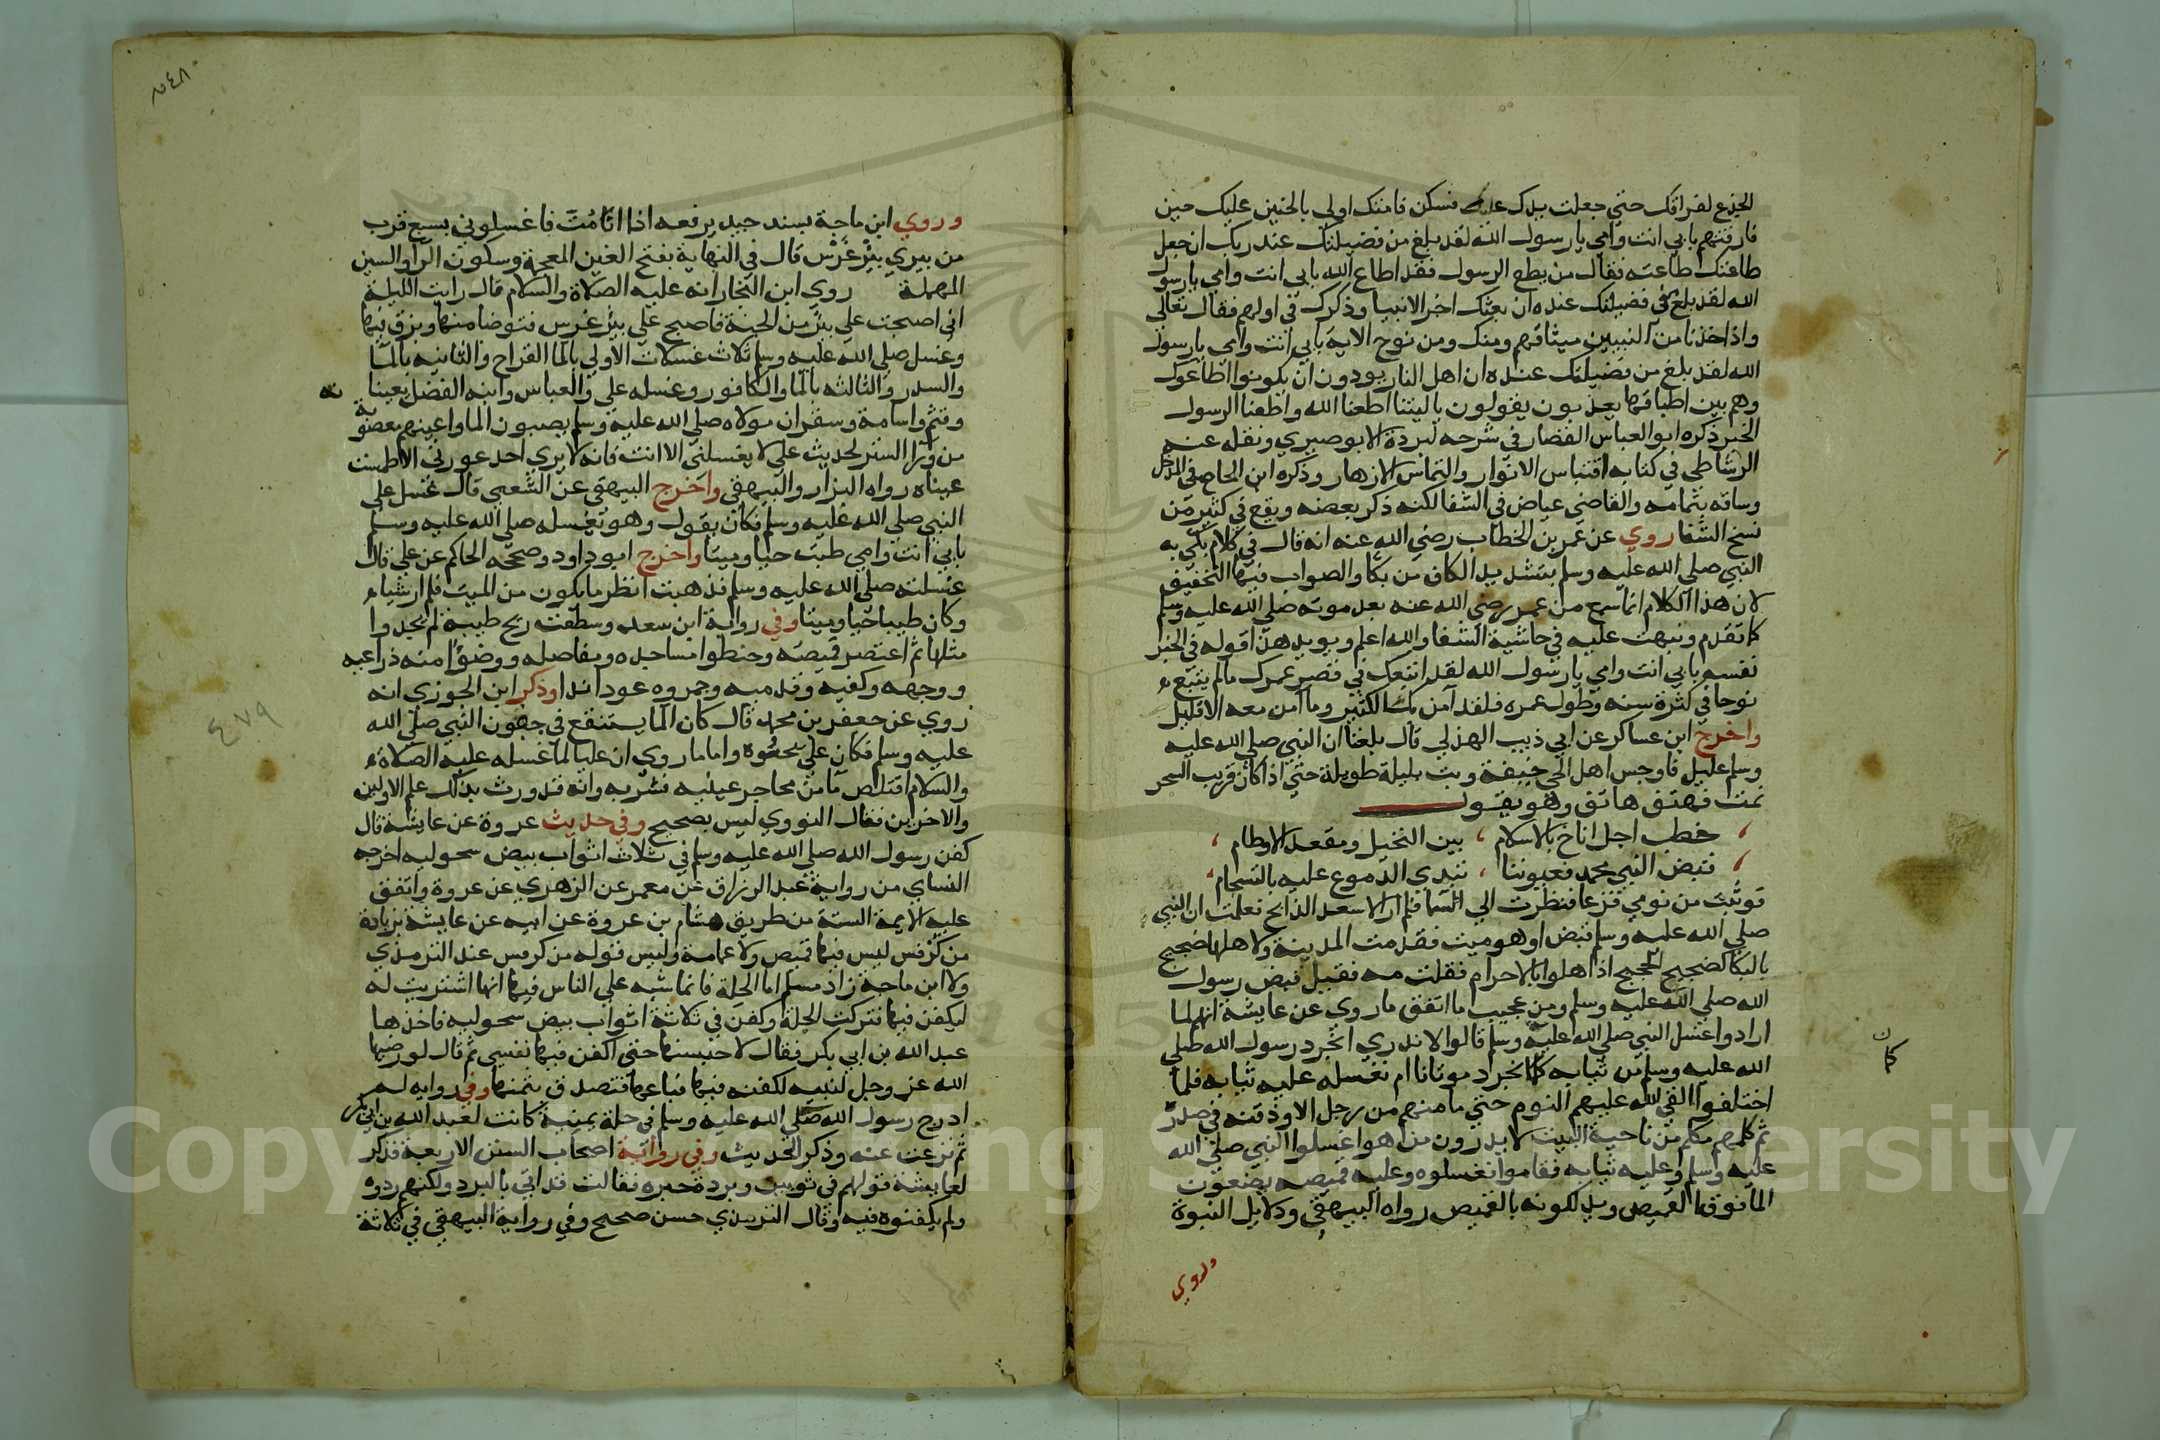 الجذع لفراقك حتي جعلت يدك عليه فسكن فامتك اولي بالحنين عليك حين
فارقتهم بابي انت وامي يارسول الله لقد بلغ من فضيلتك عند ربك ان جعل
طاعتك طاعته فقال من يطع الرسول فقد اطاع الله بابي انت وامي يارسول
الله لقد بلغ من فضيلتك عنده ان بعثك اخر الانبيا وذكرك في اولهم فقال تعالي
واذ اخذنا من النبيين ميثاقهم ومنك ومن نوح الايه بابي انت وامي يارسول
الله لقد بلغ من فضيلتك عنده ان اهل النار يودون ان يكونوا اطاعوك
وهم بين اطباقها يعذبون يقولون ياليتنا اطعنا الله واطعنا الرسول
الخبر ذكره ابو العباس القصار في شرحه لبردة الابوصيري ونقله عنه
الرشاطي في كتابه اقتباس الانوار والتماس الازهار وذكره ابن الحاج في المدخل
وساقه بتمامه والقاضي عياض في الشفا لكنه ذكر بعضه ويقع في كثير من
نسخ الشفا روي عن عمر بن الخطاب رضي الله عنه انه قال في كلام بكي به
النبي صلي الله عليه وسلم بتشديد الكاف من بكا والصواب فيها التخفيف
لان هذا الكلام انما سمع من عمر رضي الله عنه بعد موته صلي الله عليه وسلم
كما تقدم ونبهت عليه في حاشية الشفا والله اعلم ويويد هذا قوله في الخبر
نفسه بابي انت وامي يارسول الله لقد اتبعك في قصر عمرك مالم يتبع
نوحا في كثرة سنه وطول عمره فلقد آمن بك الكثير وما آمن معه الا قليل
واخرج ابن عساكر عن ابي ذيب الهزلي قال بلغنا ان النبي صلي الله عليه
وسلم عليل فاوجس اهل الحي خيفة وبت بليلة طويلة حتي اذا كان قريب السحر
نمت فهتف هاتف وهو يقول
خطب اجل اناخ بالاسلام ، بين النخيل ومقعد الاطام ،
قبض النبي محمد فعيوننا ، تبدي الدموع عليه بالتسجام
فوثبت من نومي فزعا فنظرت الي السما فلم ار الا سعد الذابح فعلمت ان النبي
صلي الله عليه وسلم قبض او هو ميت فقدمت المدينة ولاهلها ضجيج
بالبكا كضجيج الحجيج اذا اهلوا بالاحرام فقلت مه فقيل قبض رسول
الله صلي الله عليه وسلم ومن عجيب ما اتفق ما روي عن عايشة انهم لما
ارادوا غسل النبي صلي الله عليه وسلم قالوا لا ندري انجرد رسول الله صلي
الله عليه وسلم من ثيابه كما نجرد موتانا ام نغسله عليه ثيابه فلما
اختلفوا القي الله عليهم النوم حتي ما منهم من رجل الا وذقنه في صدره
ثم كلمهم مكلم من ناحية البيت لا يدرون من هو اغسلوا النبي صلي الله
عليه وسلم وعليه ثيابه فقاموا فغسلوه وعليه قميصه يضعون
الما فوق القميص ويدلكونه بالقميص رواه البيهقي ودلايل النبوة
كان
وروي
٥٤٨
وروي ابن ماجة بسند جيد يرفعه اذا انا مُتّ فاغسلوني بسبع قرب
من بيري بيْر غَرْسْ قال في النهاية بفتح الغين المعجمة وسكون الرا والسين
المهملة روي ابن النجار انه عليه الصلاة والسلام قال رايت الليلة
اني اصبحت علي بئر من الجنة فاصبح علي بئر غرس فتوضا منها وبزق فيها
وغسل صلي الله عليه وسلم ثلاث غسلات الاولي بالما القراح والثانيه بالما
والسدر والثالثه بالما والكافور وغسله علي والعباس وابنه الفضل يعينا
نه
وقثم واسامة وسقران مولاه صلي الله عليه وسلم يصبون الما واعينهم معصوبة
من ورآ الستر لحديث علي لا يغسلني الا انت فانه لا يري احد عورتي الا طمست
عيناه رواه البزار والبيهقي واخرج البيهقي عن الشعبي قال غسل علي
النبي صلي الله عليه وسلم فكان يقول وهو يغسله صلي الله عليه وسلم
بابي انت وامي طبت حيا وميتا واخرج ابو داود وصححه الحاكم عن علي قال
غسلته صلي الله عليه وسلم فذهبت انظر ما يكون من الميت فلم ار شياء
وكان طيبا حيا وميتا وفي رواية ابن سعد وسطعت ريح طيبة لم يجدوا
مثلها ثم اعتصر قميصه وحنطوا مساجده ومفاصله ووضوا منه ذراعيه
ووجهه وكفيه وقدميه وجمروه عودا ندا وذكر ابن الجوزي انه
روي عن جعفر بن محمد قال كان الما يستنقع في جفون النبي صلي الله
عليه وسلم فكان علي يحسوه واما ما روي ان عليا لما غسله عليه الصلاة
والسلام اقتلص مآ من محاجر عينيه فشربه وانه قد ورث بذلك علم الاولين
والاخرين فقال النووي ليس بصحيح وفي حديث عروة عن عايشة قال
كفن رسول الله صلي الله عليه وسلم في ثلاث اثواب بيض سحوليه اخرجه
النساي من رواية عبد الرزاق عن معمر عن الزهري عن عروة واتفق
عليه الايمة الستة من طريق هشام بن عروة عن ابيه عن عايشة بزيادة
من كرفس ليس فيها قميص ولا عمامة وليس قوله من كرفس عند الترمذي
ولا ابن ماجة زاد مسلم اما الحلة فانما شبه علي الناس فيها انها اشتريت له
ليكفن فيها فتركت الحلة وكفن في ثلاثة اثواب بيض سحوليه فاخذها
عبد الله بن ابي بكر فقال لاحبسنها حتي اكفن فيها نفسي ثم قال لو رضيها
الله عز وجل لنبيه لكفنه فيها فباعها فتصدق بثمنها وفي روايه له
ادرج رسول الله صلي الله عليه وسلم في حلة يمنية كانت لعبد الله بن ابي بكر
ثم نزعت عنه وذكر الحديث وفي رواية اصحاب السنن الاربعة فذكر
لعايشة قولهم في ثوبين وبردة حبره فقالت قد اتي بالبرد ولكنهم ردوه
ولم يكفنوه فيه وقال الترمذي حسن صحيح وفي رواية البيهقي في ثلاثة
٤٧٩
Copyright © King Saud University